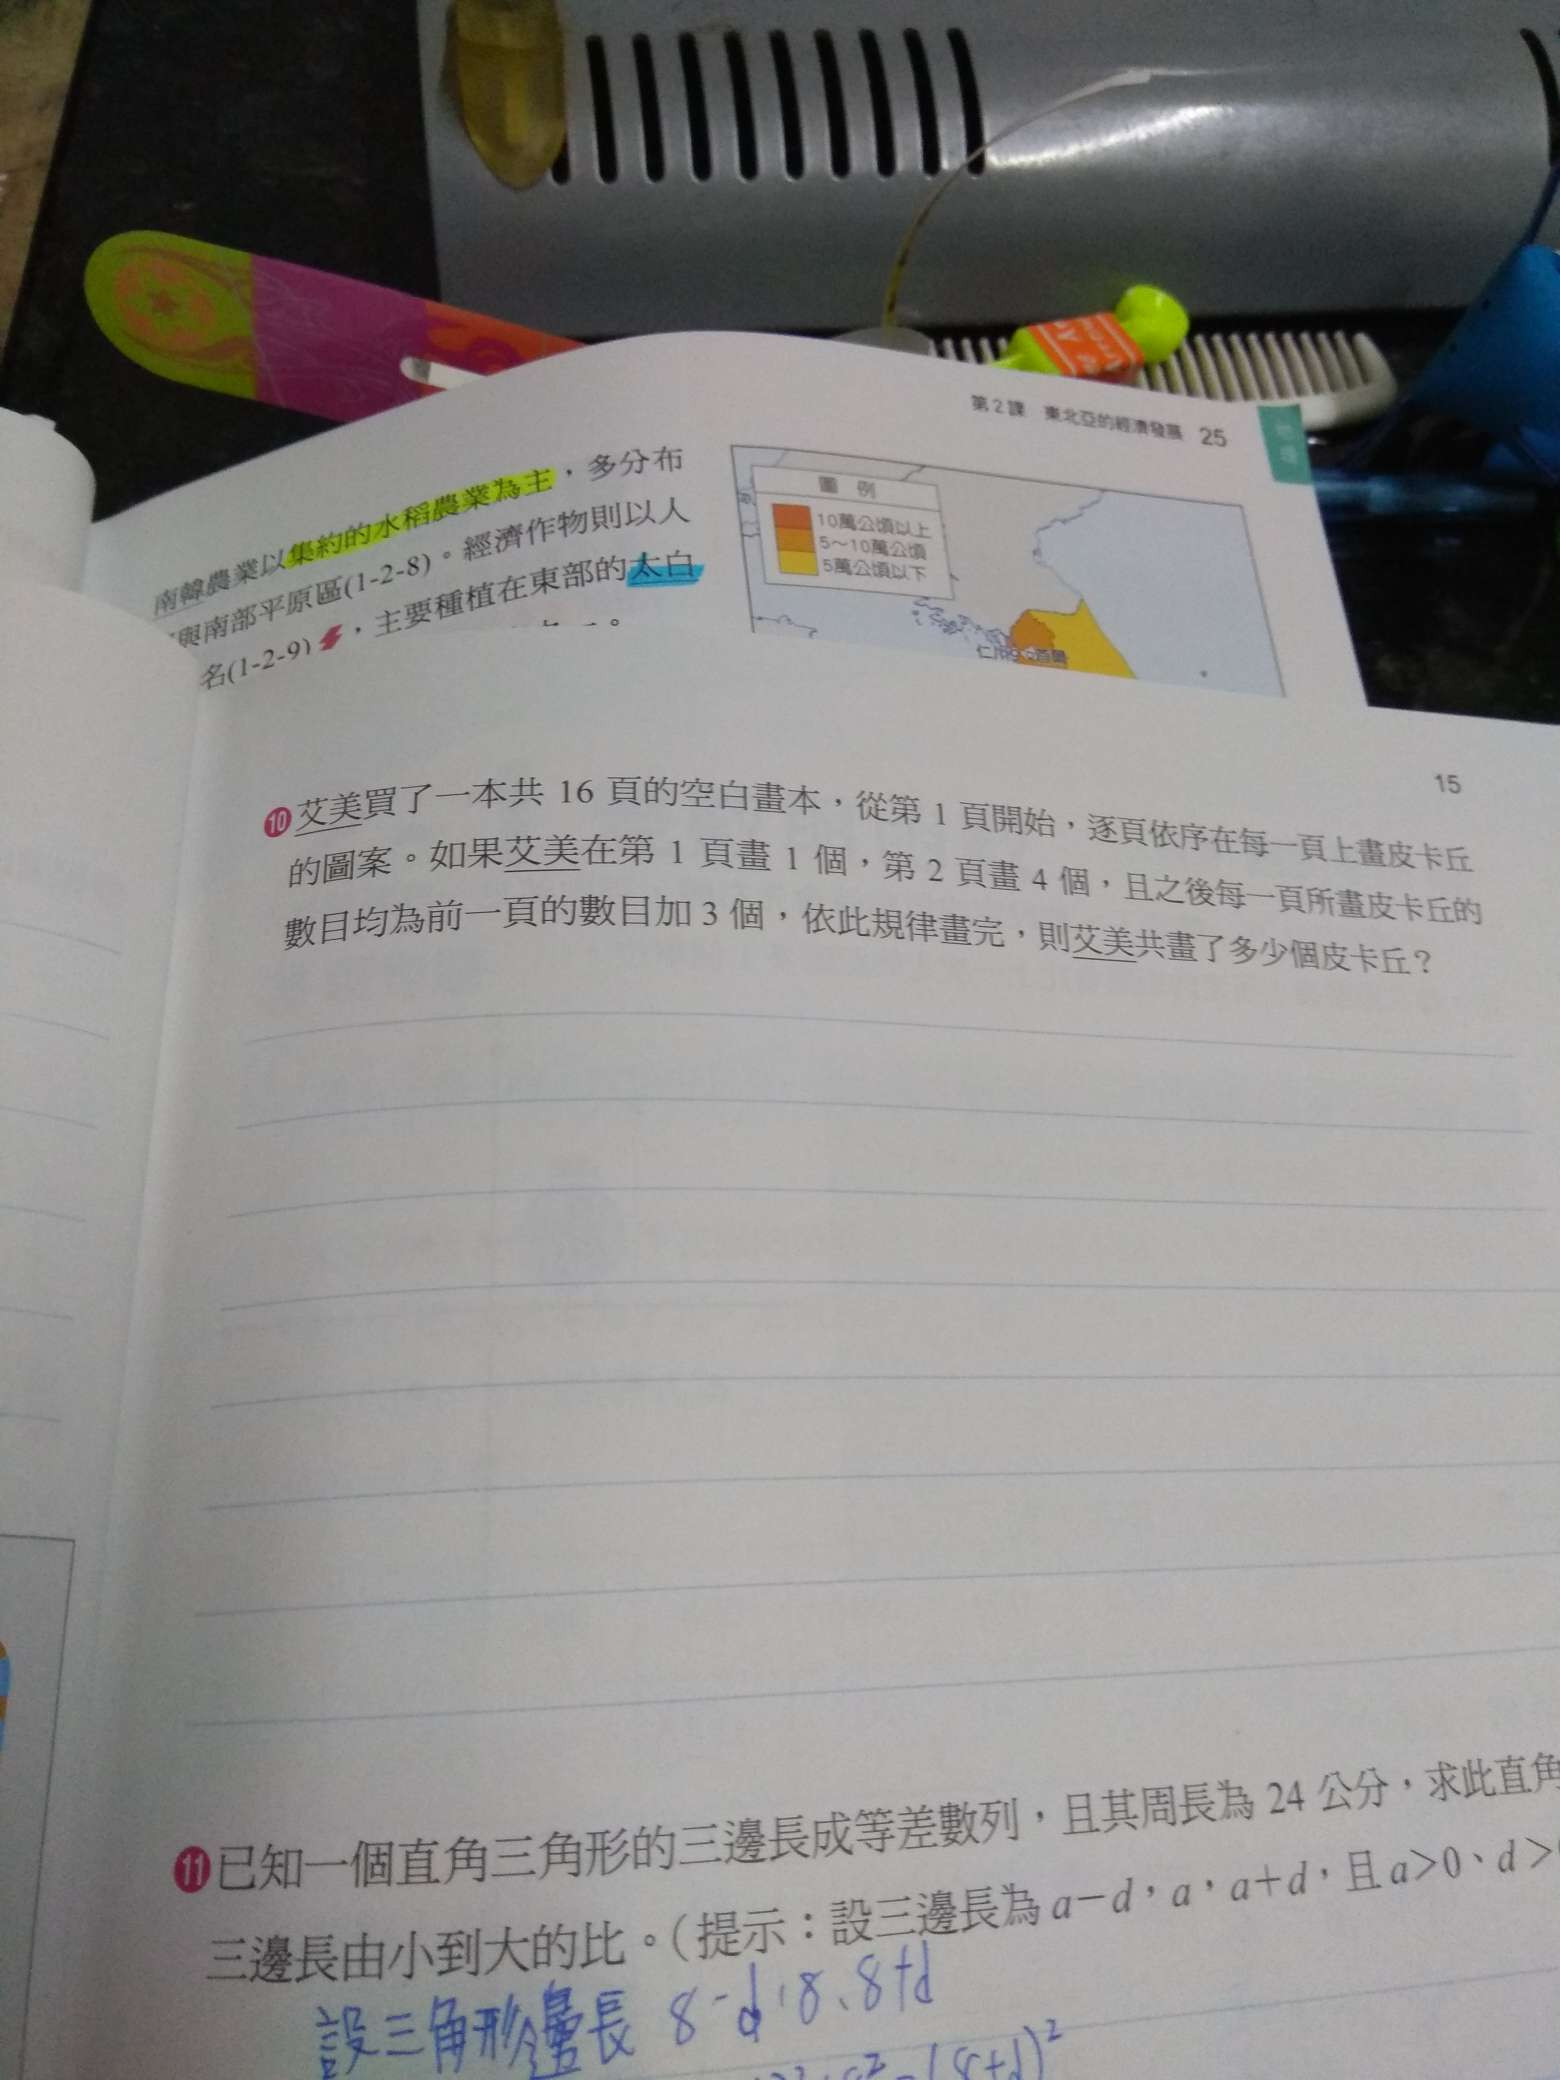 第2課 東北亞的經濟發展 25
南韓農業以集約的水稻農業為主，多分布
與南部平原區(1-2-8)。經濟作物則以人
名(1-2-9)，主要種植在東部的太白
圖例
10萬公頃以上
5～10萬公頃
5萬公頃以下
仁川 首爾
15
10 艾美買了一本共 16 頁的空白畫本，從第 1 頁開始，逐頁依序在每一頁上畫皮卡丘
的圖案。如果艾美在第 1 頁畫 1 個，第 2 頁畫 4 個，且之後每一頁所畫皮卡丘的
數目均為前一頁的數目加 3 個，依此規律畫完，則艾美共畫了多少個皮卡丘？
11 已知一個直角三角形的三邊長成等差數列，且其周長為 24 公分，求此直角
三邊長由小到大的比。(提示：設三邊長為 a－d，a，a＋d，且 a>0、d>
設三角形邊長 8-d、8、8+d
(8+d)²